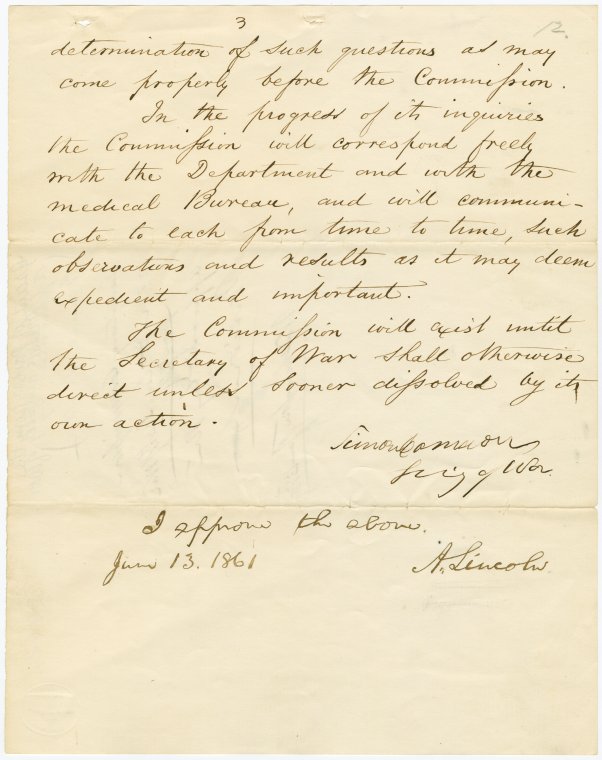 3
12.
determination of such questions as may
come properly before the Commission.
In the progress of its inquiries
the Commission will correspond freely
with the Department and with the
medical Bureau, and will communi-
cate to each from time to time, such
observations and results as it may deem
expedient and important.
The Commission will exist until
the Secretary of War shall otherwise
direct unless sooner dissolved by its
own action.
Simon Cameron
Secy of War.
I approve the above.
June 13. 1861
A. Lincoln.